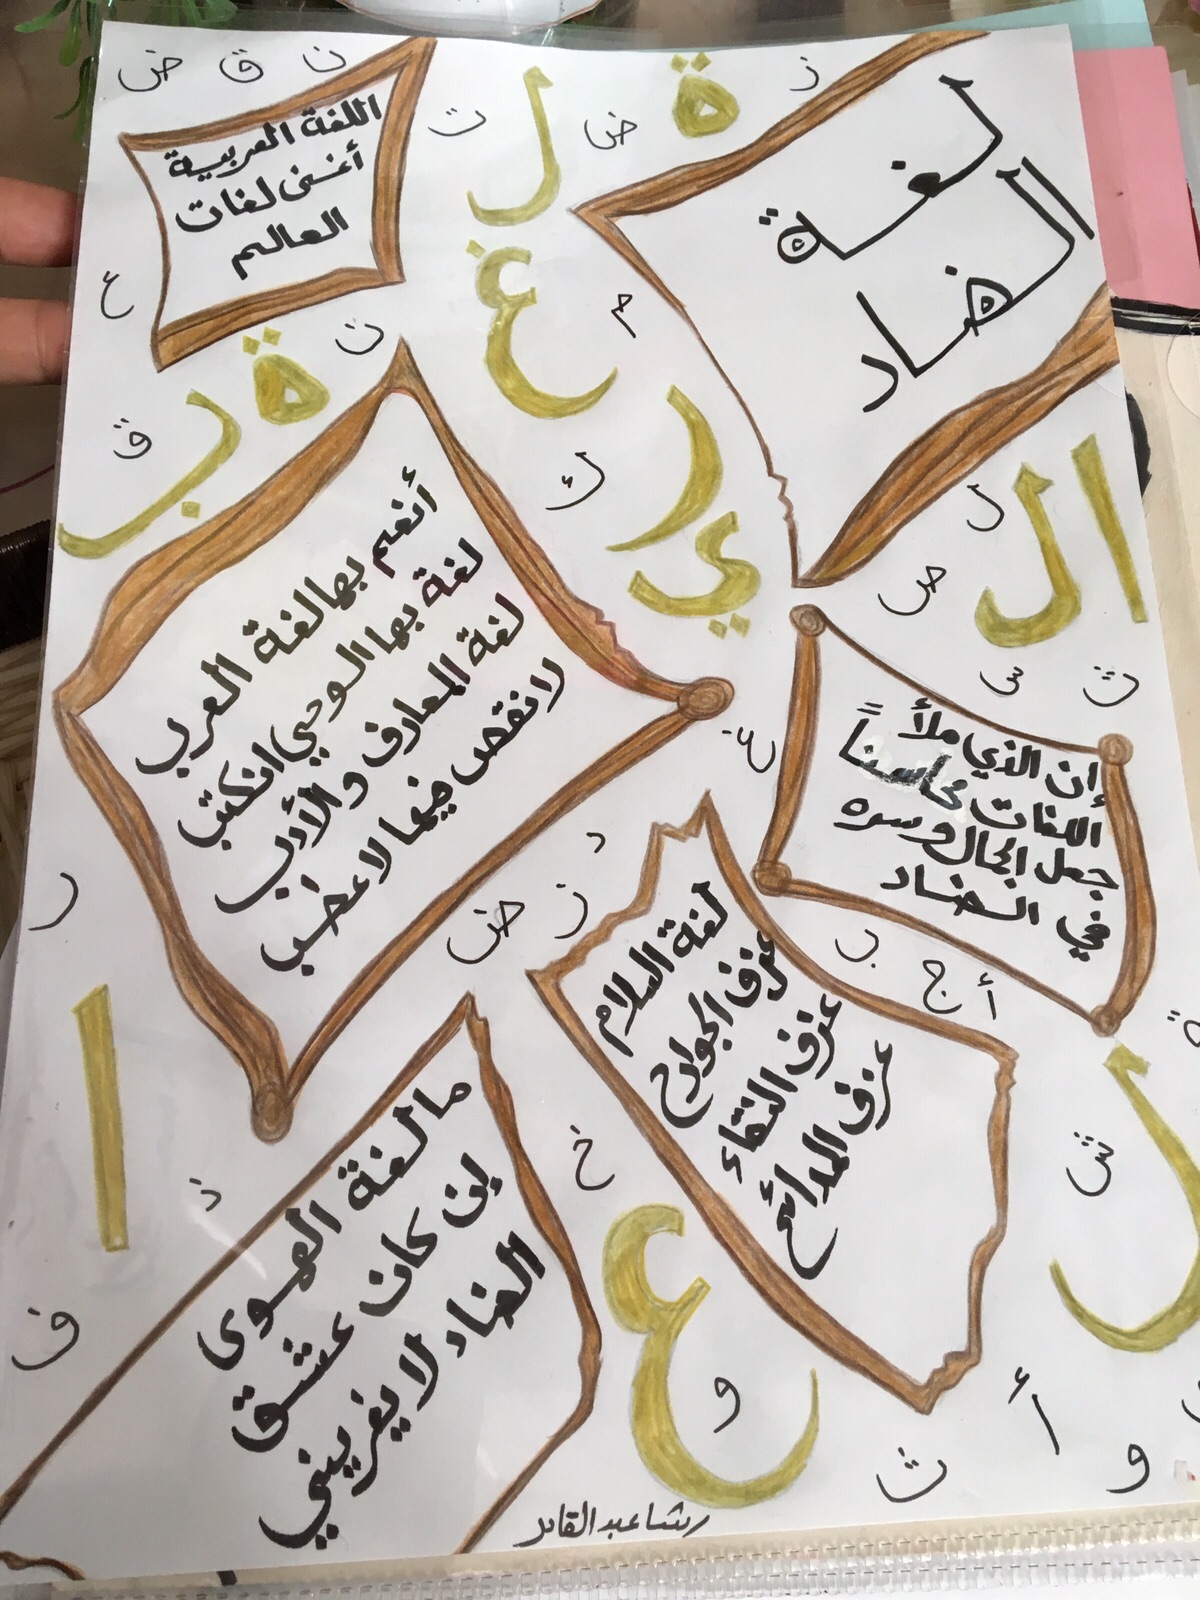 لغة
الضاد
اللغة العربية
أغنى لغات
العالم
أنعم بها لغة العرب
لغة بها الوحي انكتب
لغة المعارف والأدب
لا نقص فيها لا عضب
إن الذي ملأ
اللغات محاسناً
جعل الجمال وسره
في الضاد
لغة السلام
عزف الجوارح
عزف النقاء
عزف المدائح
ما لغة الهوى
لمن كان عشق
الضاد لا يغريني
رشا عبد القادر
ض ق ن
ة ل ض ت ز
غ م ع ن
ة ب ق
ر ي ك
ا ل
ل ص
ث س
غ
د ز ض ر
ب ج أ ة
ا
ل
خ ش ذ
ف ع و
أ ث و